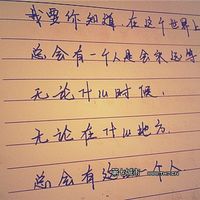 我要你知道，在这个世界上
总会有一个人是会永远等
无论什么时候，
无论在什么地方，
总会有这么一个人